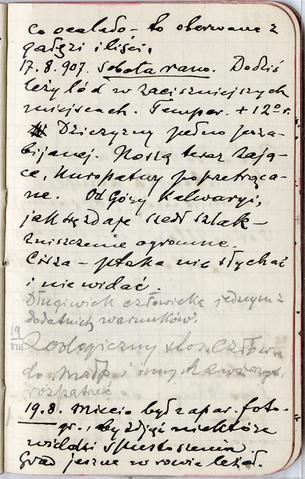 co ocalało – to oberwane z
gałęzi i liści.
17.8.907. sobota rano. Dodziś
leży lód w zaciszniejszych
miejscach. Temper. +12° r.
Dziczyzny pełno poza-
bijanej. Noszą teraz zają-
ce, kuropatwy poprzetrąca-
ne. Od Góry Kalwaryi,
jak się zdaje szedł szlak –
zniszczenie ogromne.
Cisza – ptaka nie słychać
i nie widać.
człowieka jednym z
dodatnich warunków
19/VIII Zoologiczny stos. człow.
do małp i innych
rozpatrzeć.
19.8. Miecio był z apar. foto-
gr., by zdjąć niektóre
widoki spustoszenia
Grad jeszcze w rowie leżał.